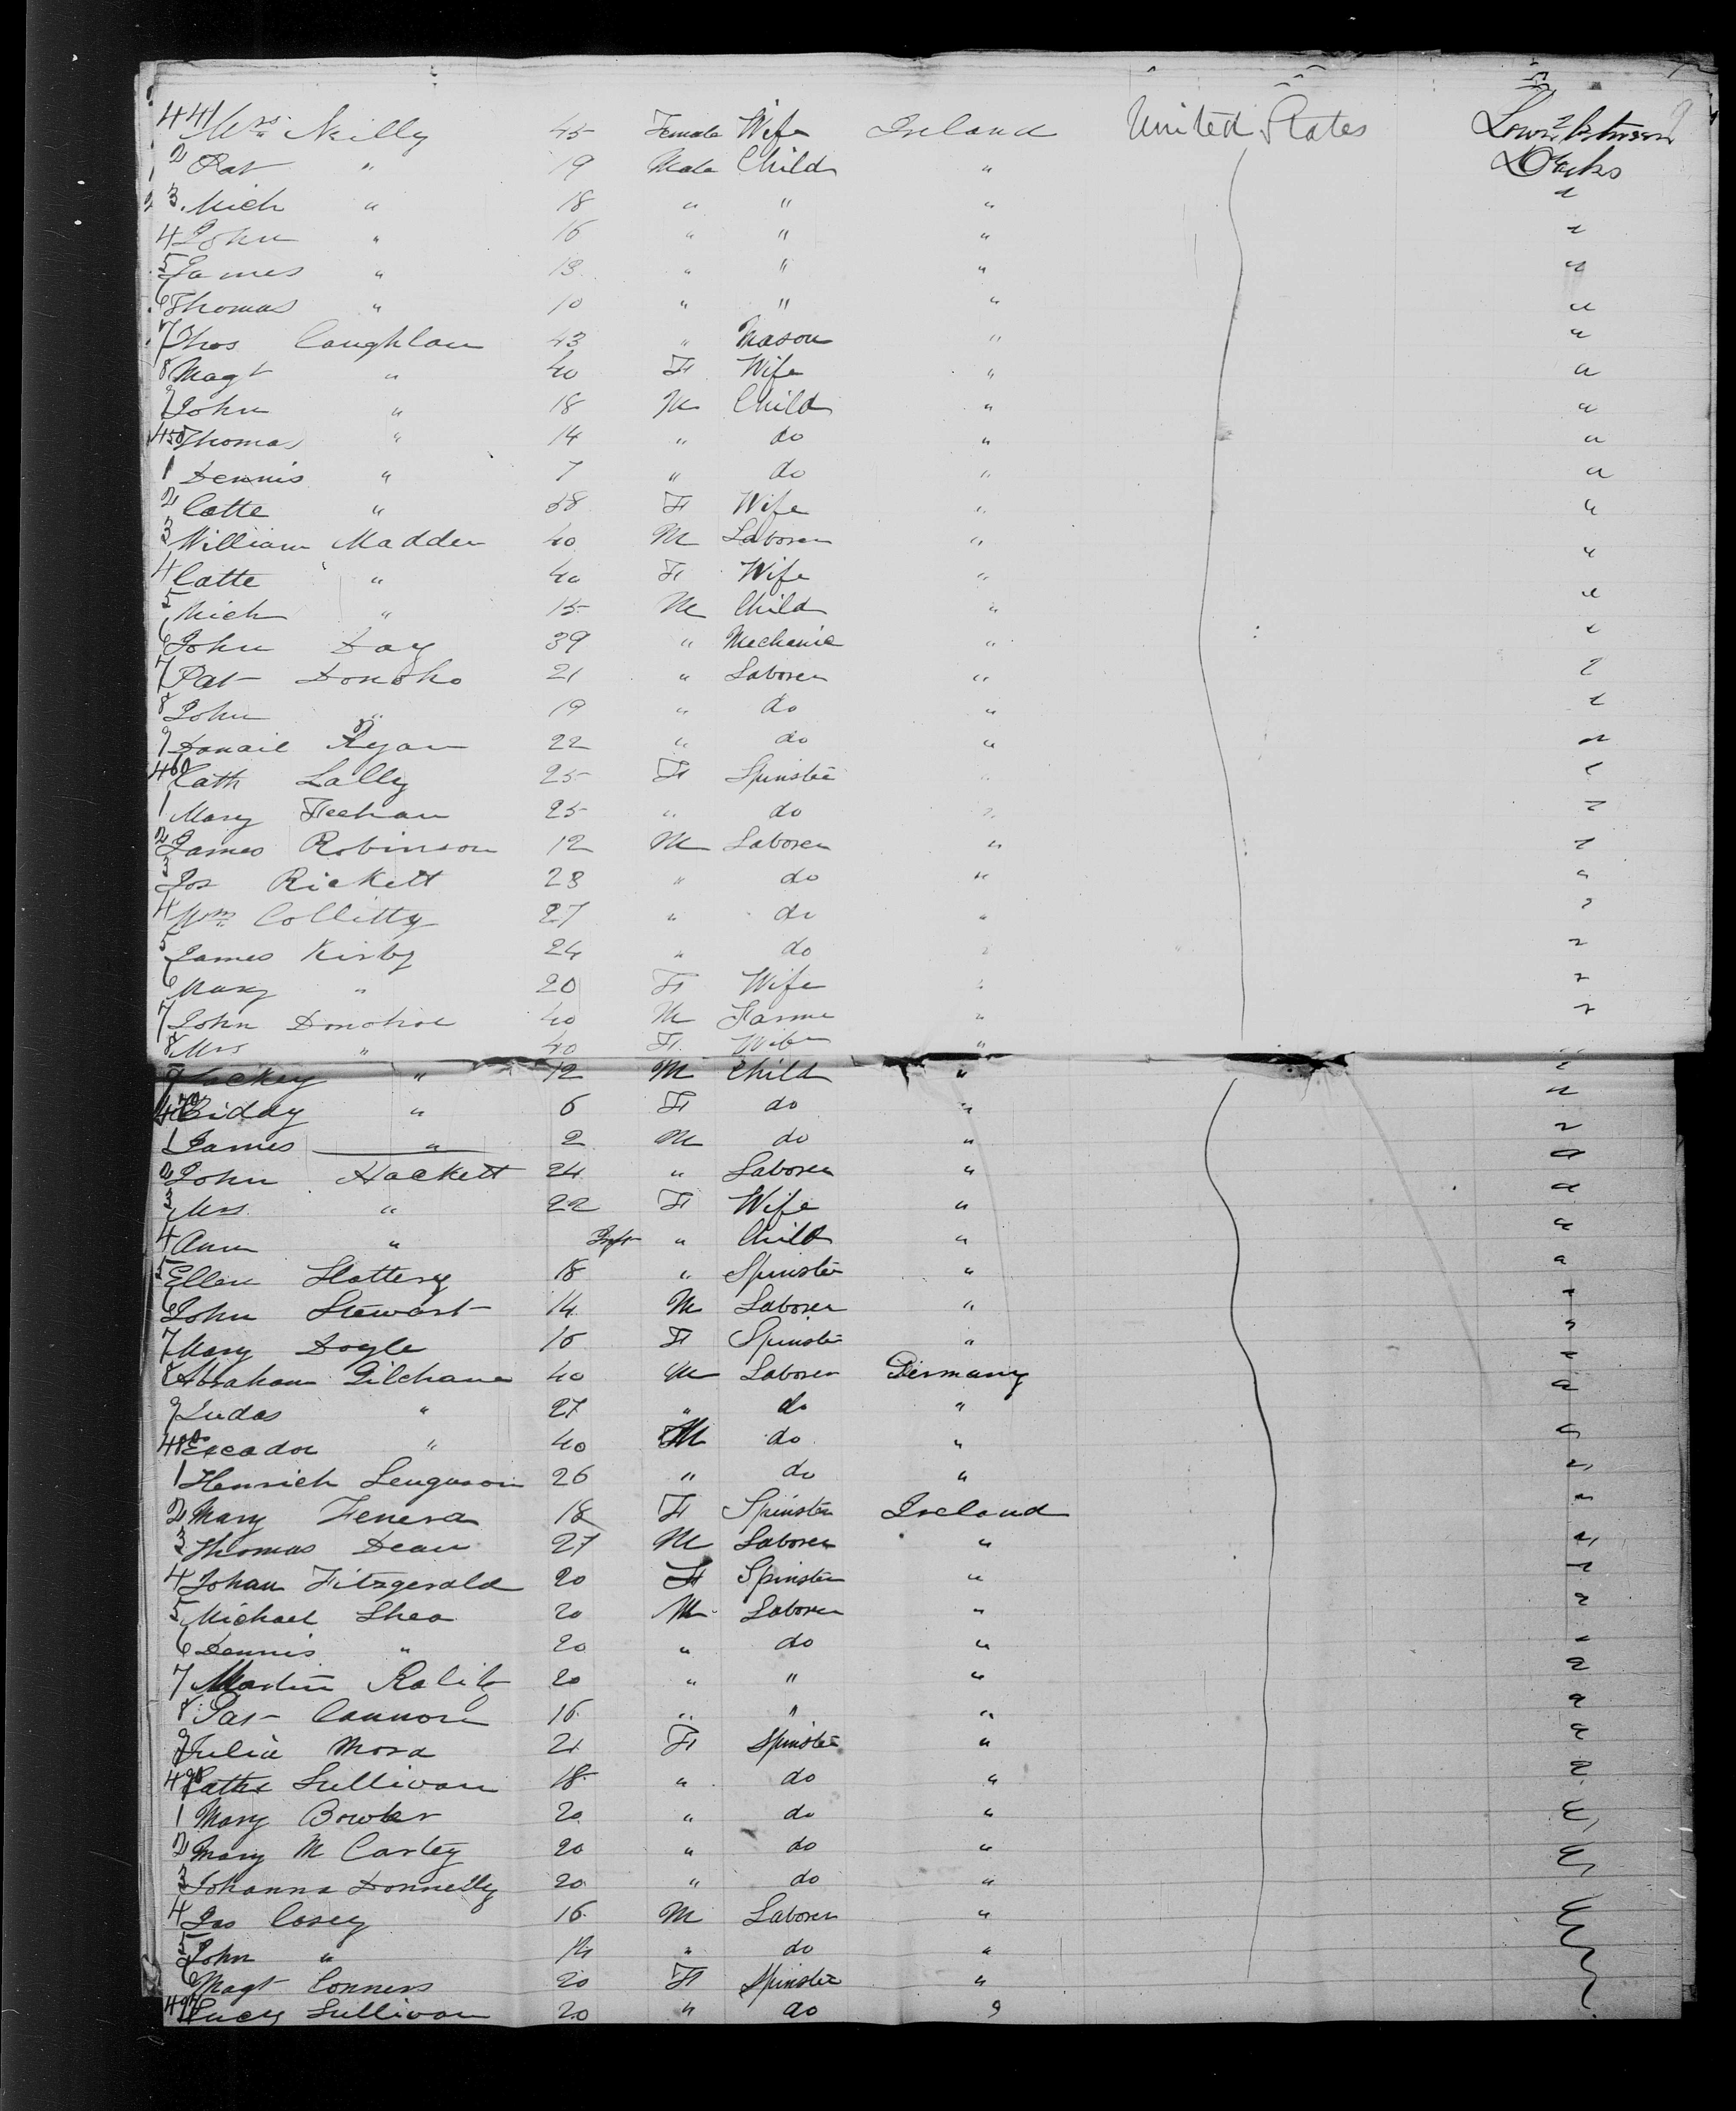 441 Mrs Neilly 45 Female Wife Ireland United States Lower Between
2 Pat " 19 Male Child " Decks
3 Mich " 18 " " " "
4 John " 16 " " " "
5 James " 13 " " " "
6 Thomas " 10 " " " "
7 Thos Coughlan 43 " Mason " "
8 Magt " 40 F Wife " "
9 John " 18 M Child " "
450 Thomas " 14 " do " "
1 Dennis " 7 " do " "
2 Catte " 38 F Wife " "
3 William Madden 40 M Laborer " "
4 Catte " 40 F Wife " "
5 Mich " 15 M Child " "
6 John Day 39 " Mechanic " "
7 Pat Donoho 21 " Laborer " "
8 John " 19 " do " "
9 Danail Ryan 22 " do " "
460 Cath Lally 25 F Spinster " "
1 Mary Feehan 25 " do " "
2 James Robinson 12 M Laborer " "
3 Jos Rickett 28 " do " "
4 Wm Collitty 27 " do " "
5 James Kirby 24 " do " "
6 Mary " 20 F Wife " "
7 John Donohoe 40 M Farmer " "
8 Mrs " 40 F Wife " "
9 Lackey " 12 M Child " "
470 Biddy " 6 F do " "
1 James " 2 M do " "
2 John Hackett 24 " Laborer " "
3 Mrs " 22 F Wife " "
4 Ann " Inft " Child " "
5 Ellen Slattery 18 " Spinster " "
6 John Stewart 14 M Laborer " "
7 Mary Doyle 16 F Spinster " "
8 Abraham Gilchane 40 M Laborer Germany "
9 Judas " 27 " do " "
480 " 40 M do " "
1 Henrich Lenguson 26 " do " "
2 Mary Fenera 18 F Spinster Ireland "
3 Thomas Dean 27 M Laborer " "
4 Johan Fitzgerald 20 F Spinster " "
5 Michael Shea 20 M Laborer " "
6 Dennis " 20 " do " "
7 Martin 20 " " " "
8 Pat Connors 16 " " " "
9 Julia Mora 21 F Spinster " "
490 Cathe Sullivan 18 " do " "
1 Mary Bowler 20 " do " "
2 Mary M Carley 20 " do " "
3 Johanna Donnelly 20 " do " "
4 Jas Casey 16 M Laborer " "
5 John " 14 " do "
6 Magt Conners 20 F Spinster "
497 Lucy Sullivan 20 " do "